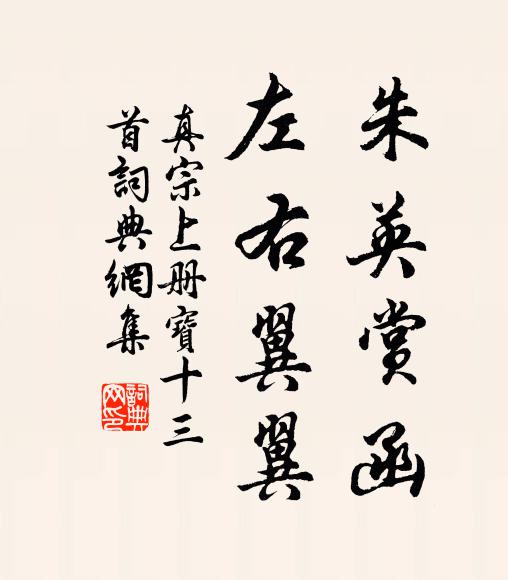 朱英賞函
左右翼翼
真宗上册寶十三
首詞典網集
詞典
网印